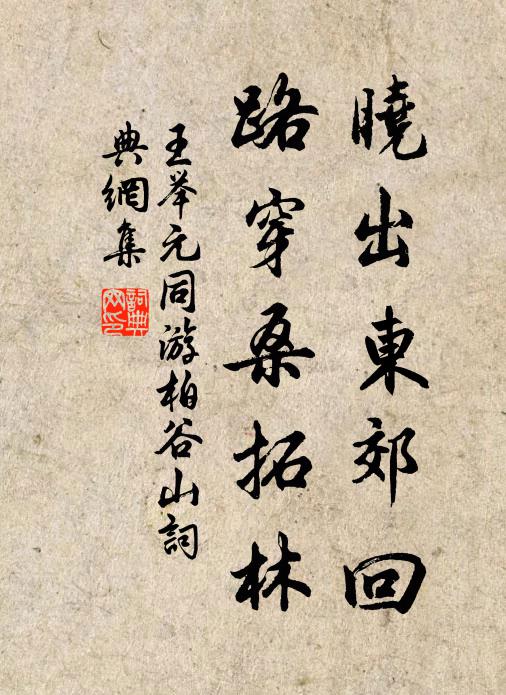 曉出東郊回
路穿桑拓林
王举元同游柏谷山詞
典網集
詞典
网印